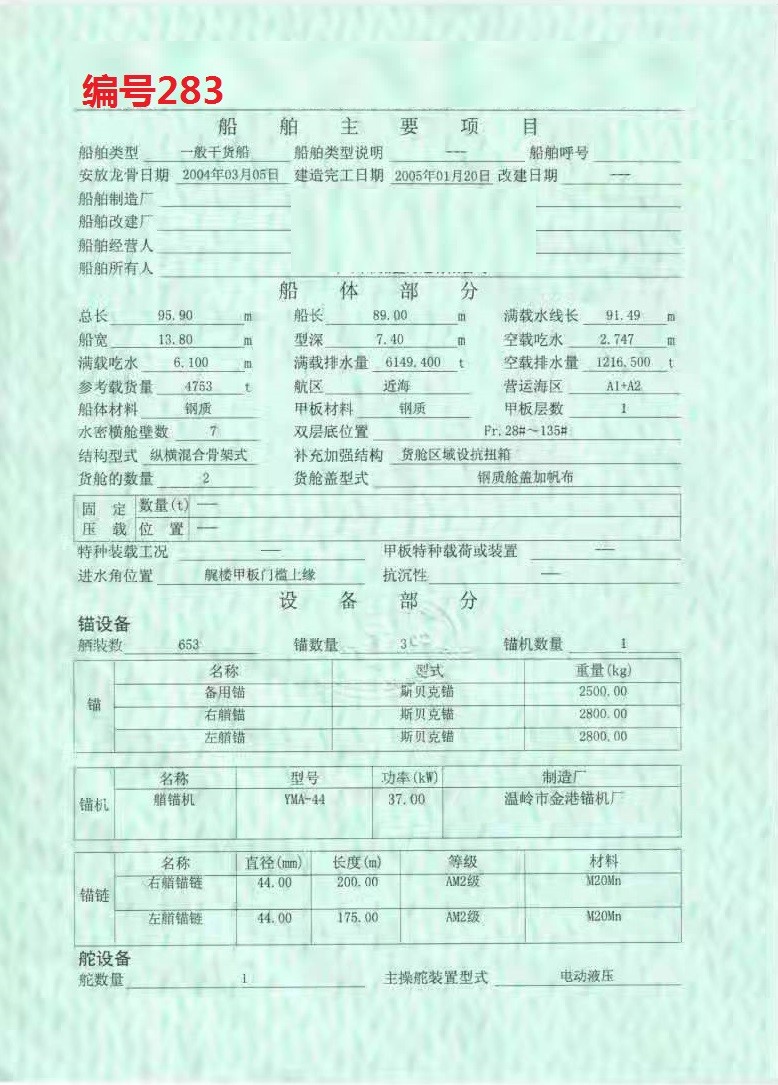 编号283
船舶主要项目
船舶类型 一般干货船 船舶类型说明 --- 船舶呼号
安放龙骨日期 2004年03月05日 建造完工日期 2005年01月20日 改建日期 ---
船舶制造厂
船舶改建厂
船舶经营人
船舶所有人
船体部分
总长 95.90 m 船长 89.00 m 满载水线长 91.49 m
船宽 13.80 m 型深 7.40 m 空载吃水 2.747 m
满载吃水 6.100 m 满载排水量 6149.400 t 空载排水量 1216.500 t
参考载货量 4753 t 航区 近海 营运海区 A1+A2
船体材料 钢质 甲板材料 钢质 甲板层数 1
水密横舱壁数 7 双层底位置 Fr.28#~135#
结构型式 纵横混合骨架式 补充加强结构 货舱区域设抗扭箱
货舱的数量 2 货舱盖型式 钢质舱盖加帆布
固定压载 数量(t) ---
位置 ---
特种装载工况 --- 甲板特种载荷或装置 ---
进水角位置 艉楼甲板门槛上缘 抗沉性 ---
设备部分
锚设备
舾装数 653 锚数量 3 锚机数量 1
锚 名称 型式 重量(kg)
备用锚 斯贝克锚 2500.00
右艏锚 斯贝克锚 2800.00
左艏锚 斯贝克锚 2800.00
锚机 名称 型号 功率(kW) 制造厂
艏锚机 YMA-44 37.00 温岭市金港锚机厂
锚链 名称 直径(mm) 长度(m) 等级 材料
右艏锚链 44.00 200.00 AM2级 M20Mn
左艏锚链 44.00 175.00 AM2级 M20Mn
舵设备
舵数量 1 主操舵装置型式 电动液压